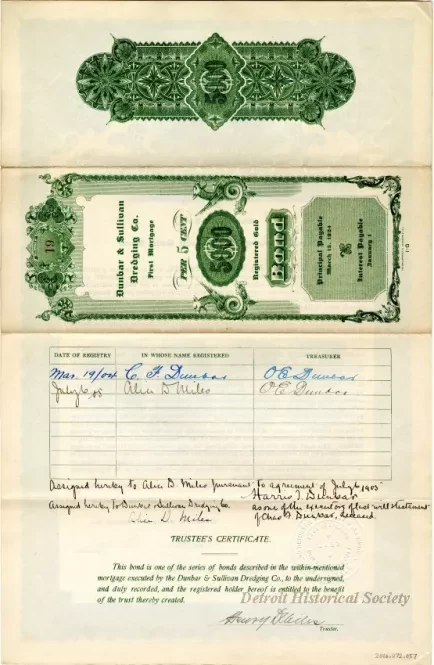 5000
19
Dunbar & Sullivan
Dredging Co.
First Mortgage
PER 5 CENT
5000
Registered Gold
Bond
Principal Payable
March 15, 1924
Interest Payable
January 1
DATE OF REGISTRY
IN WHOSE NAME REGISTERED
TREASURER
Mar. 19/04 C. F. Dunbar O E Dunbar
July 6, 05 Alice D Miles O E Dunbar
Assigned hereby to Alice D. Miles pursuant to agreement of July 6 1905
Harris T. Dunbar
Assigned hereby to Dunbar & Sullivan Dredging Co.
as one of the executors of last will & testament
Alice D. Miles
of Chas F. Dunbar, deceased.
TRUSTEE'S CERTIFICATE.
This bond is one of the series of bonds described in the within-mentioned
mortgage executed by the Dunbar & Sullivan Dredging Co., to the undersigned,
and duly recorded, and the registered holder hereof is entitled to the benefit
of the trust thereby created.
Detroit Historical Society
Henry
Trustee.